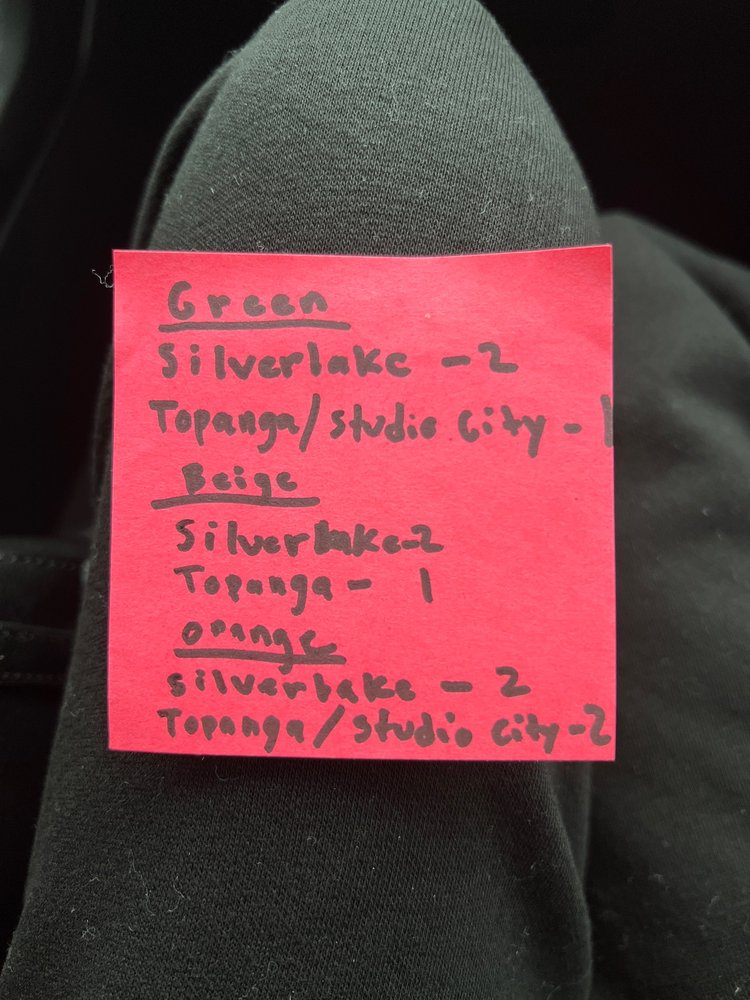 Green
Silverlake - 2
Topanga/Studio City - 1
Beige
Silverlake-2
Topanga - 1
orange
silverlake - 2
Topanga/Studio city-2